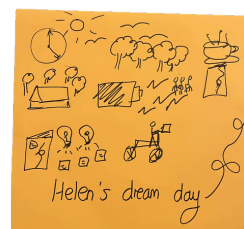 Helen's dream day